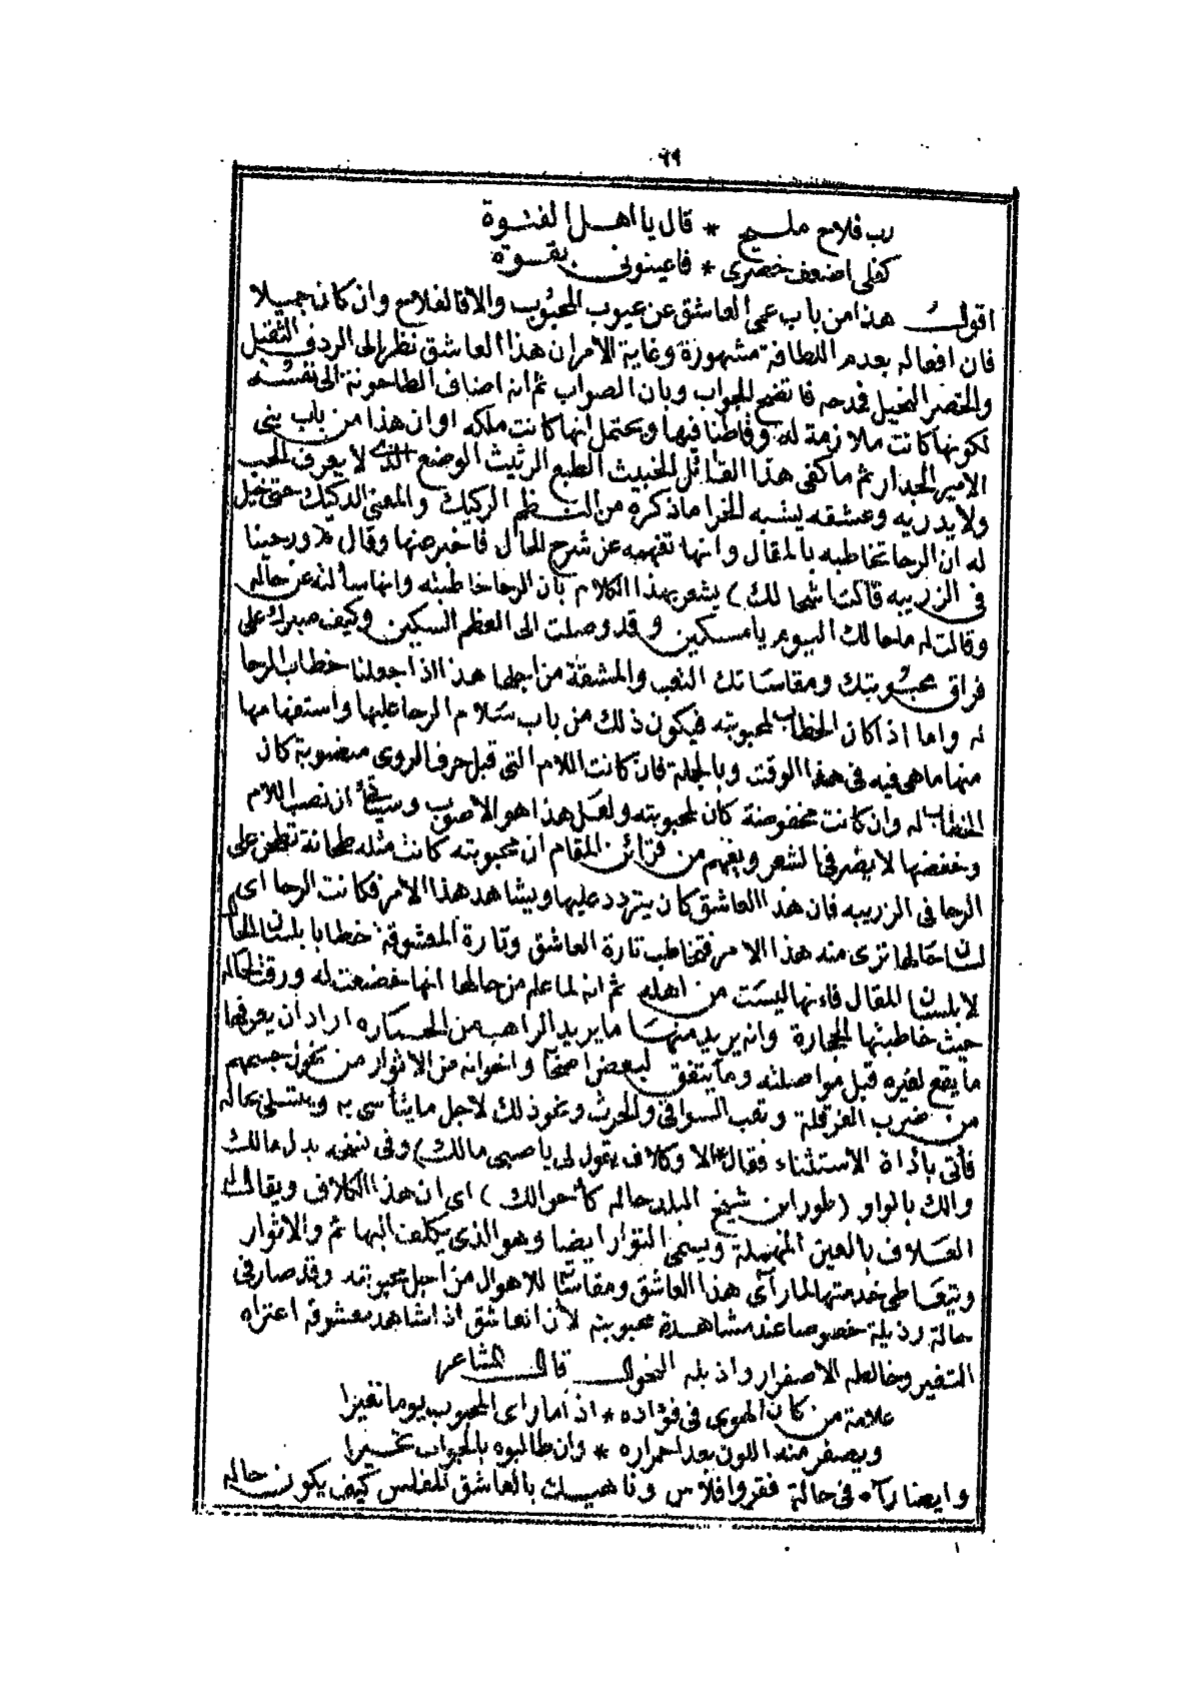 ٦٩
رب فلاح مليح * قال يا اهل الفتوة
كفلى اضعف خصرى * فاعينونى بقوة
اقول هذا من باب عمى العاشق عن عيوب المحبوب والا فالفلاح وان كان جميلا
فان افعاله بعدم اللطافة مشهورة وغاية الامر ان هذا العاشق نظر الى الردف الثقيل
والخصر النحيل فمدحه فاتضح الجواب وبان الصواب ثم انه اضاف الطاحونة الى نفسه
لكونها كانت ملازمة له وقاطنا فيها ويحتمل انها كانت ملكه او ان هذا من باب بنى
الامير الجدار ثم ما كفى هذا القائل الخبيث الطبع الرثيث الوضع الذى لا يعرف الحب
ولا يدريه وعشقه يشبه الخرا ما ذكره من النظم الركيك والمعنى الدكيك حتى خيل
له ان الرحا تخاطبه بالمقال وانها تفهمه عن شرح الحال فاخبر عنها وقال (ورحينا
فى الزريبه قالت اشحالك) يشعر بهذا الكلام بان الرحا خاطبته وانها سألته عن حاله
وقالت له ما حالك اليوم يا مسكين وقد وصلت الى العظم السكين وكيف صبرك على
فراق محبوبتك ومقاساتك التعب والمشقة من اجلها هذا اذا جعلنا خطاب الرحا
له واما اذا كان الخطاب لمحبوبته فيكون ذلك من باب سلام الرحا عليها واستفهامها
منها ما هى فيه فى هذا الوقت وبالجملة فان كانت اللام التى قبل حرف الروى منصوبة كان
الخطاب له وان كانت مخفوضة كان لمحبوبته ولعل هذا هو الاصوب وسيأتى ان نصب اللام
وخفضها لا يضر فى الشعر ويفهم من قرائن المقام ان محبوبته كانت مثله طحانة تطحن على
الرحا فى الزريبه فان هذا العاشق كان يتردد عليها ويشاهد هذا الامر فكانت الرحا اى
لسان حالها ترى منه هذا الامر فتخاطب تارة العاشق وتارة المعشوقة خطابا بلسان الحال
لا بلسان المقال فانها ليست من اهله ثم انه لما علم من حالها انها خضعت له ورقت لحاله
حيث خاطبتها الحجارة وانه يريد منها ما يريد الراهب من الحساره اراد ان يعرفها
ما يقع لغيره قبل مواصلته وما يتفق لبعض اصحابه واخوانه من الاثوار من نحول جسمهم
من ضرب الفرقلة وتعب السواقى والحرث ونحو ذلك لاجل ما يتأسى به ويتسلى بحاله
فأتى بأداة الاستثناء فقال (الا وكلاف يقول لى يا صبى مالك) وفى نسخه بدل مالك
والك بالواو (طور ابن شيخ البلد حاله كأحوالك) اى ان هذا الكلاف ويقال له
العلاف بالعين المهملة ويسمى التوار ايضا وهو الذى يكلف البهائم والاثوار
ويتعاطى خدمتها لما رأى هذا العاشق ومقاساته للاهوال من اجل محبوبته وقد صار فى
حالة رذيلة خصوصا عند مشاهدة محبوبته لأن العاشق اذا شاهد معشوقه اعتراه
التغير وخالطه الاصفرار واذبله النحول قال الشاعر
علامة من كان الهوى فى فؤاده * اذا ما راى المحبوب يوما تغيرا
ويصفر منه اللون بعد احمراره * وان طالبوه بالجواب تحيرا
وايضا رآه فى حالة فقر وافلاس وناهيك بالعاشق المفلس كيف يكون حاله